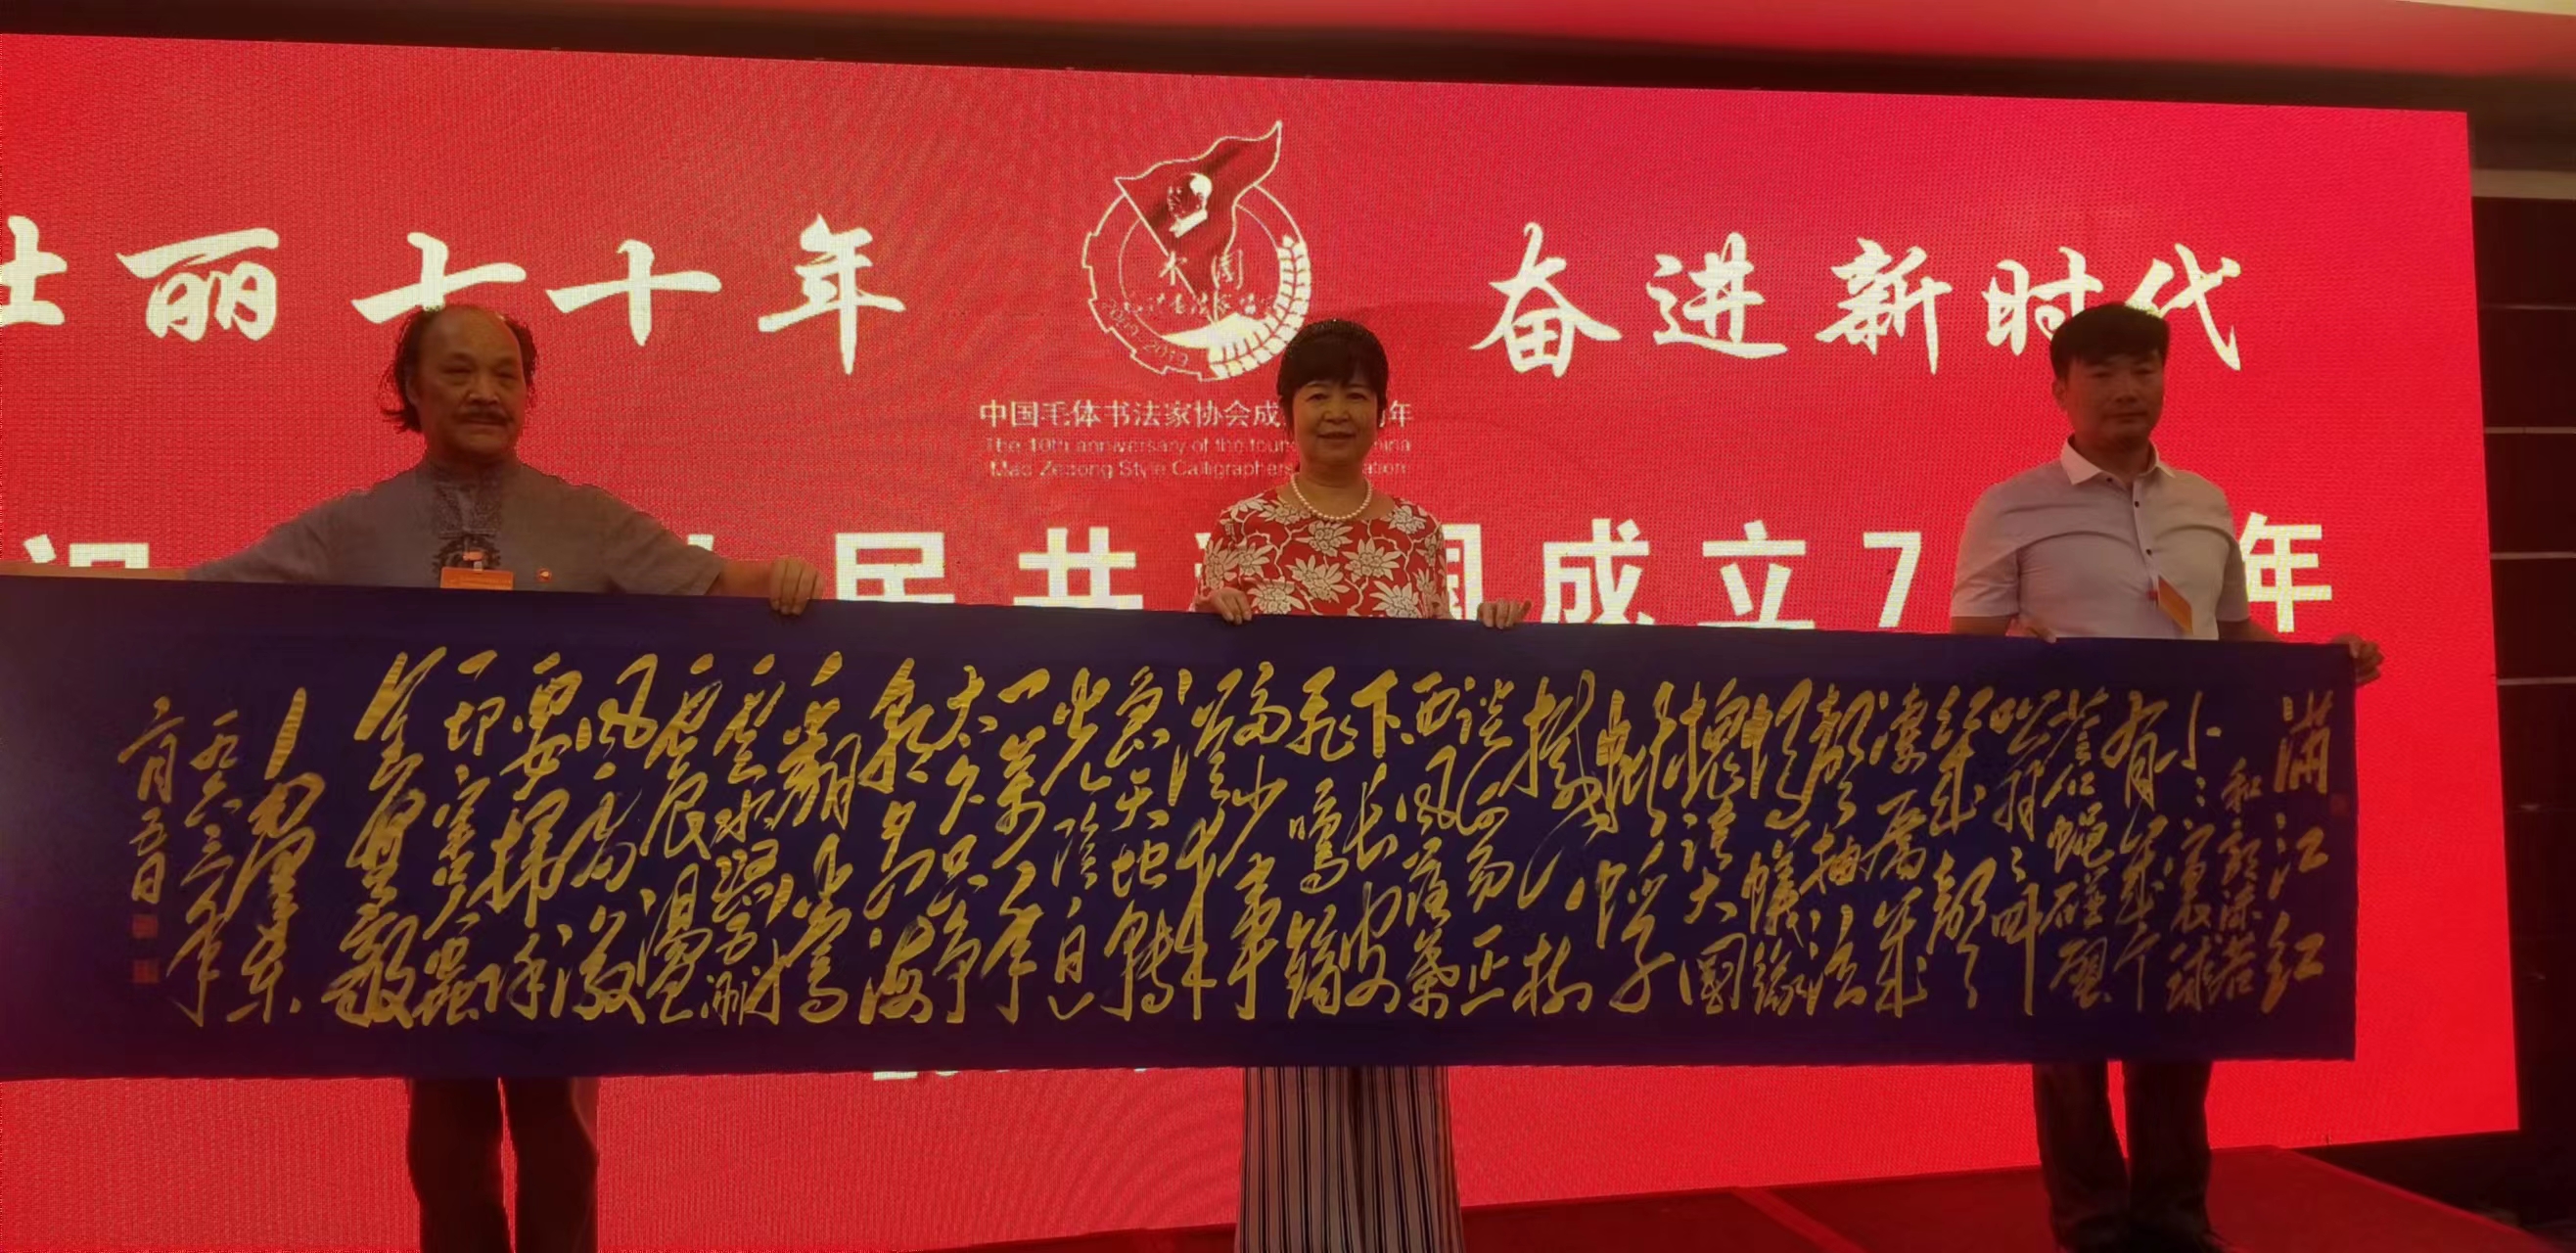 壮丽七十年 奋进新时代
中国
中国毛体书法家协会成 年
The 10th anniversary of the foun
Mao Zedong Style Calligraphers ation
民共 国成立7 年
满江红
和郭沫若
小小寰球
有几个
苍蝇碰壁
嗡嗡叫
几声
凄厉几
声抽泣
蚂蚁缘
槐夸大國
蚍蜉
撼树
谈何易正
西风落叶
下长安
飞鸣镝
多少事
从来
急天地转
光阴迫
一万年
太久只争
朝夕四海
翻腾
云水怒五洲
震荡
风雷激
要扫除
一切害人虫
全无敌
毛泽东
一九六三年
月五日